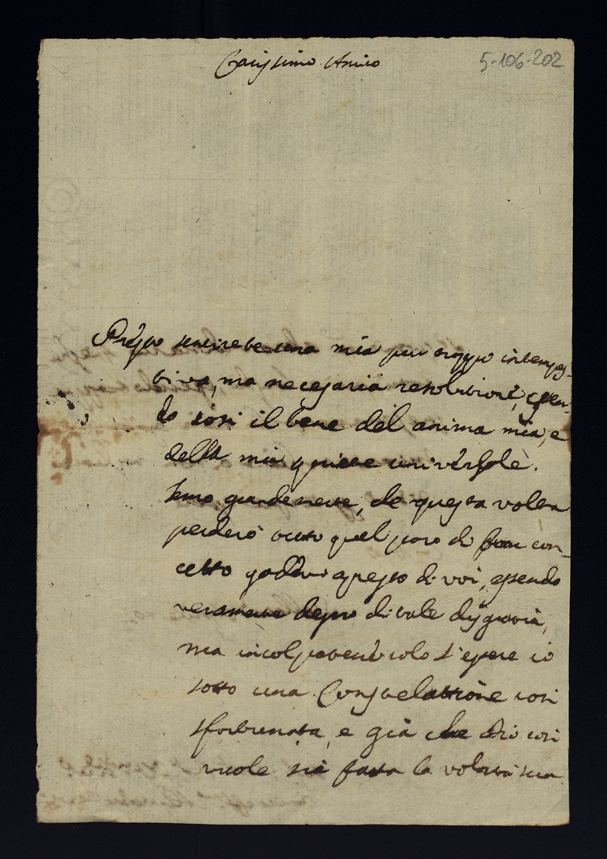 Carissimo Amico
5-106-202
Presto sentirete una mia pur troppo intempes-
tiva, ma necesaria resolutione, essen-
do cosi il bene del anima mia, e
della mia quiete universale.
Temo grandemente, che questa volta
perderò tutto quel poco di buon con-
cetto godevo apresso di voi, essendo
veramente degno di tale disgratia,
ma incolpatene solo l'essere io
sotto una Constellattione cosi
sfortunata, e già che Dio cosi
vuole sia fatta la volontà sua